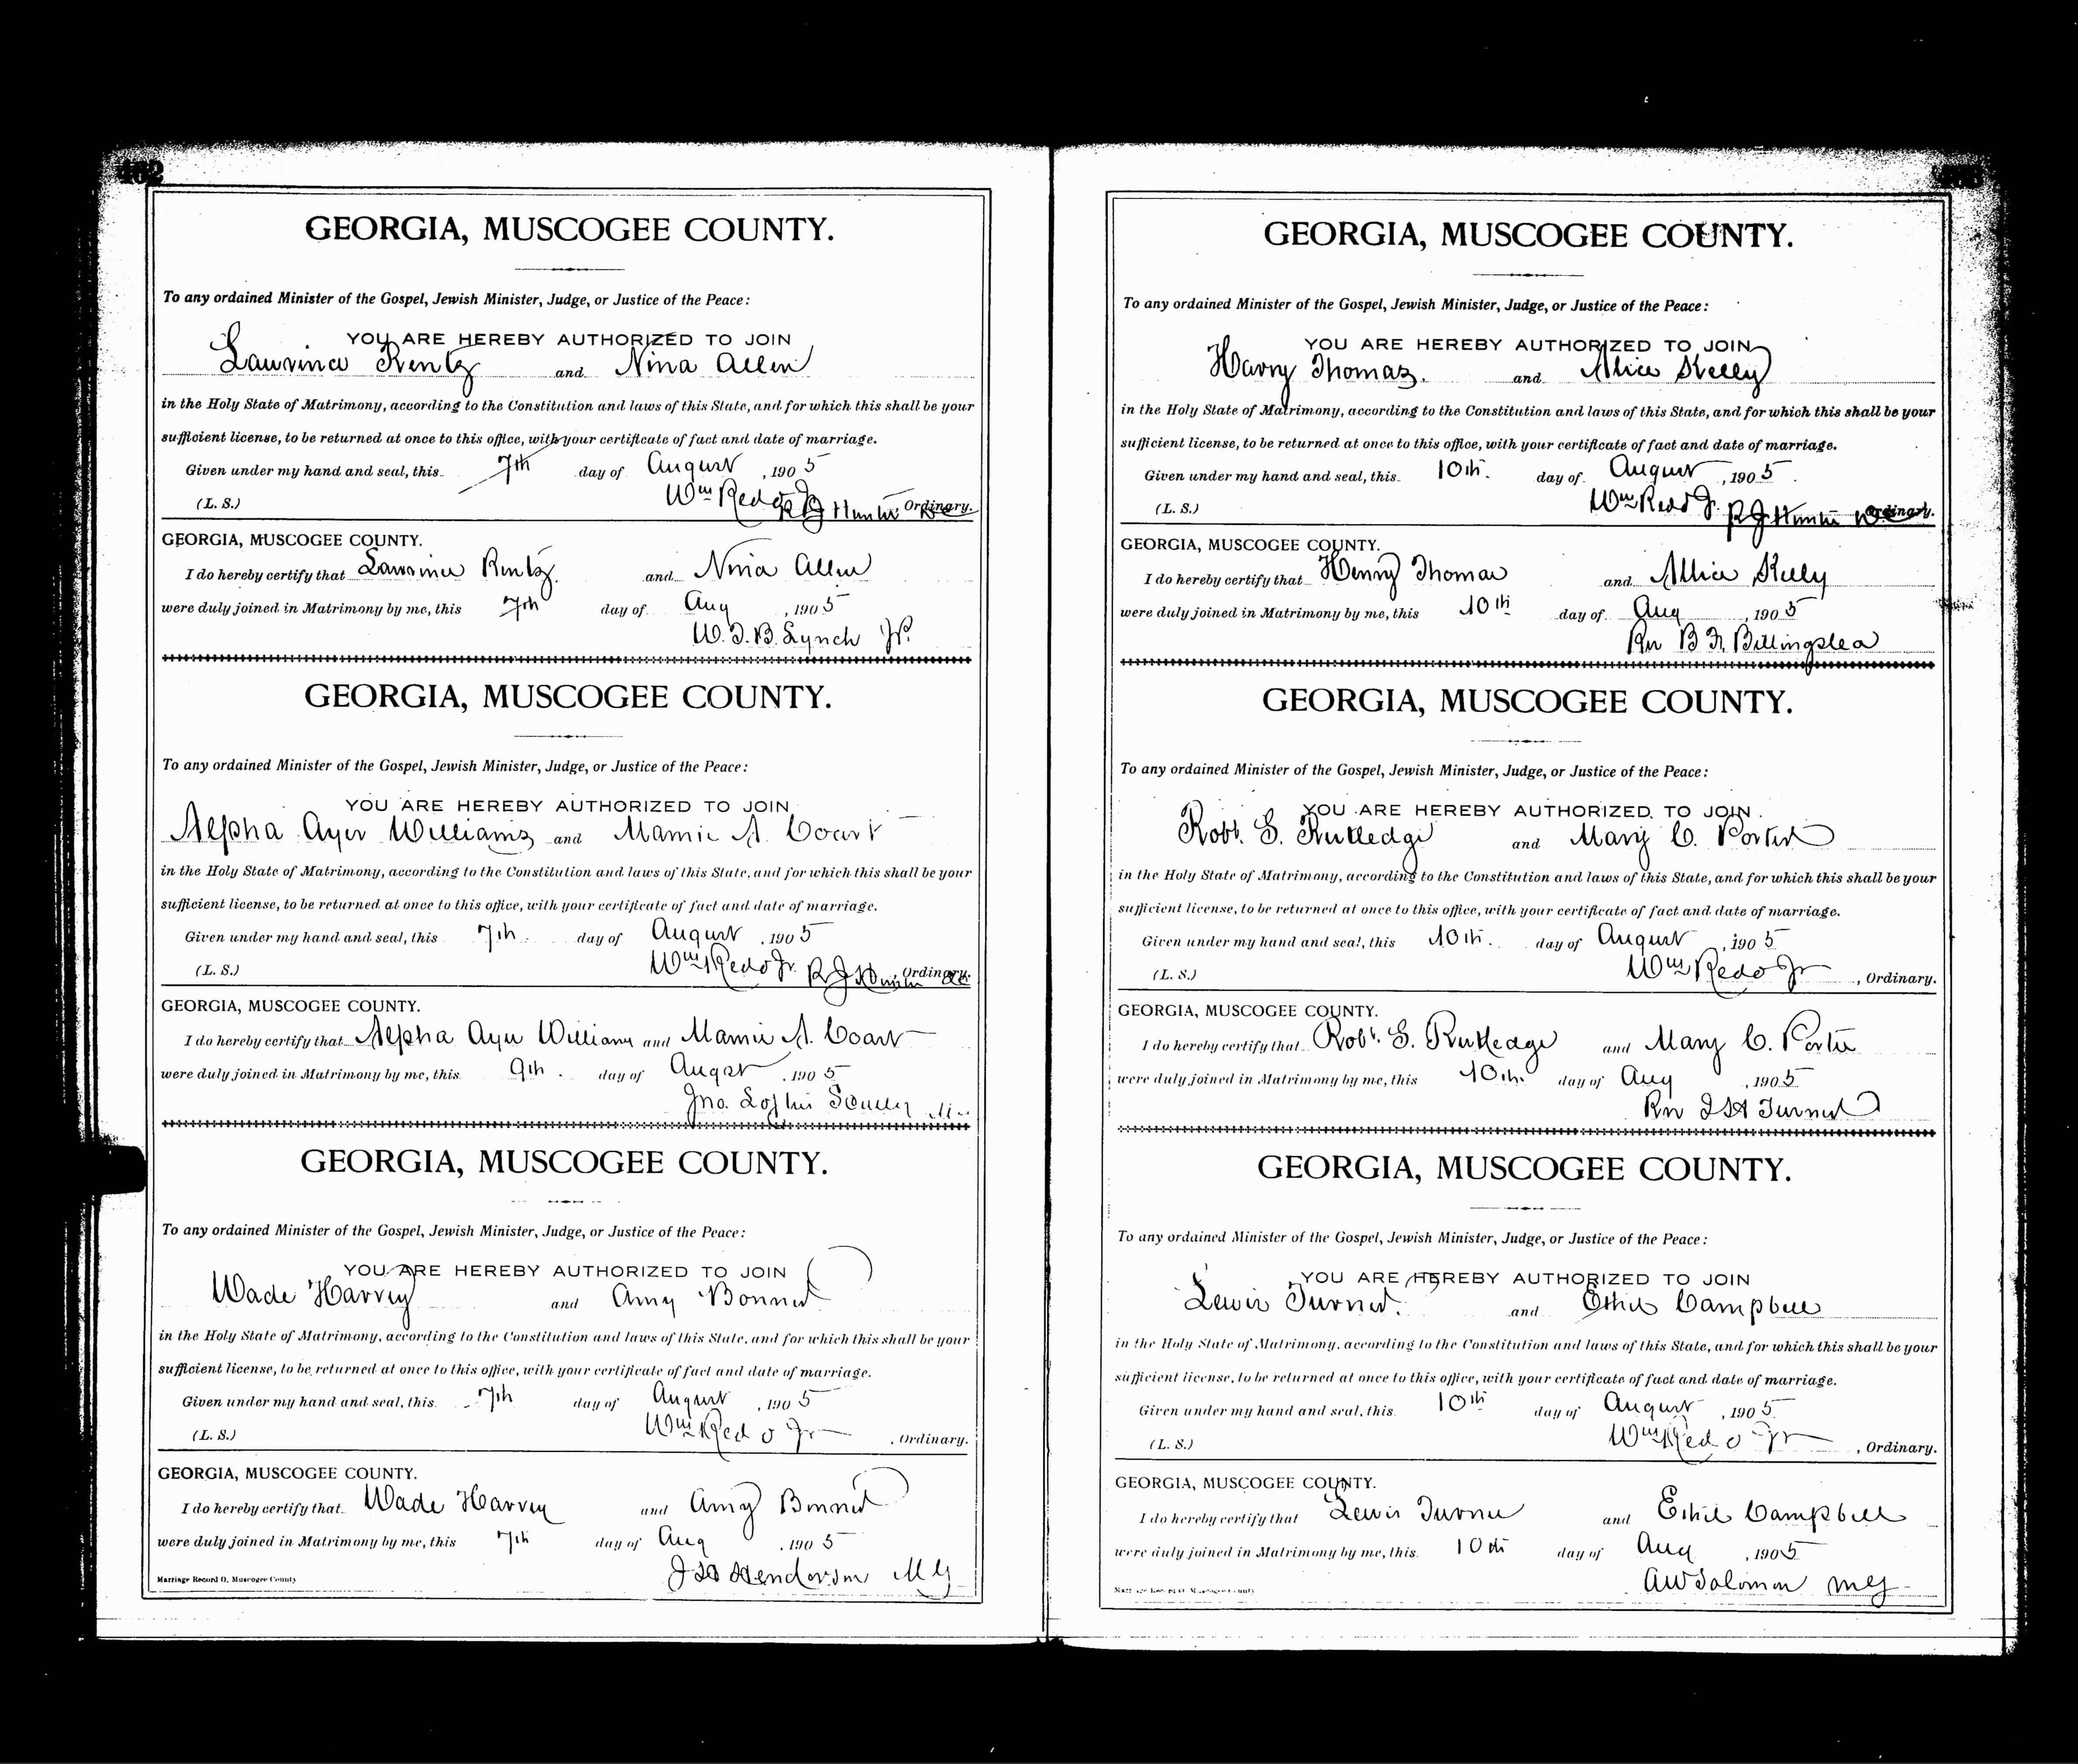 GEORGIA, MUSCOGEE COUNTY.
To any ordained Minister of the Gospel, Jewish Minister, Judge, or Justice of the Peace:
YOU ARE HEREBY AUTHORIZED TO JOIN
Rentz and Nina Allen
in the Holy State of Matrimony, according to the Constitution and laws of this State, and for which this shall be your
sufficient license, to be returned at once to this office, with your certificate of fact and date of marriage.
Given under my hand and seal, this 7th day of August, 1905
(L. S.) Wm Redd Jr R J Hunter Ordinary.
GEORGIA, MUSCOGEE COUNTY.
I do hereby certify that Rentz and Nina Allen
were duly joined in Matrimony by me, this 7th day of Aug, 1905
W. T. B. Lynch JP.
GEORGIA, MUSCOGEE COUNTY.
To any ordained Minister of the Gospel, Jewish Minister, Judge, or Justice of the Peace:
YOU ARE HEREBY AUTHORIZED TO JOIN
Alpha Ayer Williams and Mamie A. Coart
in the Holy State of Matrimony, according to the Constitution and laws of this State, and for which this shall be your
sufficient license, to be returned at once to this office, with your certificate of fact and date of marriage.
Given under my hand and seal, this 7th. day of August, 1905
(L. S.) Wm Redd Jr. R J Hunter Ordinary.
GEORGIA, MUSCOGEE COUNTY.
I do hereby certify that Alpha Ayer Williams and Mamie A. Coart
were duly joined in Matrimony by me, this 9th. day of August, 1905
Jno.
GEORGIA, MUSCOGEE COUNTY.
To any ordained Minister of the Gospel, Jewish Minister, Judge, or Justice of the Peace:
YOU ARE HEREBY AUTHORIZED TO JOIN
Wade Harvey and Amy Bonner
in the Holy State of Matrimony, according to the Constitution and laws of this State, and for which this shall be your
sufficient license, to be returned at once to this office, with your certificate of fact and date of marriage.
Given under my hand and seal, this 7th day of August, 1905
(L. S.) Wm Redd Jr, Ordinary.
GEORGIA, MUSCOGEE COUNTY.
I do hereby certify that Wade Harvey and Amy Bonner
were duly joined in Matrimony by me, this 7th day of Aug, 1905
Henderson M G
Marriage Record O, Muscogee County
GEORGIA, MUSCOGEE COUNTY.
To any ordained Minister of the Gospel, Jewish Minister, Judge, or Justice of the Peace:
YOU ARE HEREBY AUTHORIZED TO JOIN
Harry Thomas. and Allice Kelly
in the Holy State of Matrimony, according to the Constitution and laws of this State, and for which this shall be your
sufficient license, to be returned at once to this office, with your certificate of fact and date of marriage.
Given under my hand and seal, this 10th. day of August, 1905
(L. S.) Wm Redd Jr. R J Hunter Ordinary.
GEORGIA, MUSCOGEE COUNTY.
I do hereby certify that Henry Thomas and Allice Kelly
were duly joined in Matrimony by me, this 10th day of Aug, 1905
Rev B F. Billingslea
GEORGIA, MUSCOGEE COUNTY.
To any ordained Minister of the Gospel, Jewish Minister, Judge, or Justice of the Peace:
YOU ARE HEREBY AUTHORIZED TO JOIN
Robt. G. Rutledge and Mary C. Porter
in the Holy State of Matrimony, according to the Constitution and laws of this State, and for which this shall be your
sufficient license, to be returned at once to this office, with your certificate of fact and date of marriage.
Given under my hand and seal, this 10th. day of August, 1905
(L. S.) Wm Redd Jr, Ordinary.
GEORGIA, MUSCOGEE COUNTY.
I do hereby certify that Robt. G. Rutledge and Mary C. Porter
were duly joined in Matrimony by me, this 10th. day of Aug, 1905
Rev Turner
GEORGIA, MUSCOGEE COUNTY.
To any ordained Minister of the Gospel, Jewish Minister, Judge, or Justice of the Peace:
YOU ARE HEREBY AUTHORIZED TO JOIN
Lewis Turner. and Ethel Campbell
in the Holy State of Matrimony, according to the Constitution and laws of this State, and for which this shall be your
sufficient license, to be returned at once to this office, with your certificate of fact and date of marriage.
Given under my hand and seal, this 10th day of August, 1905
(L. S.) Wm Redd Jr, Ordinary.
GEORGIA, MUSCOGEE COUNTY.
I do hereby certify that Lewis Turner and Ethel Campbell
were duly joined in Matrimony by me, this 10th day of Aug, 1905
AW Solomon MG